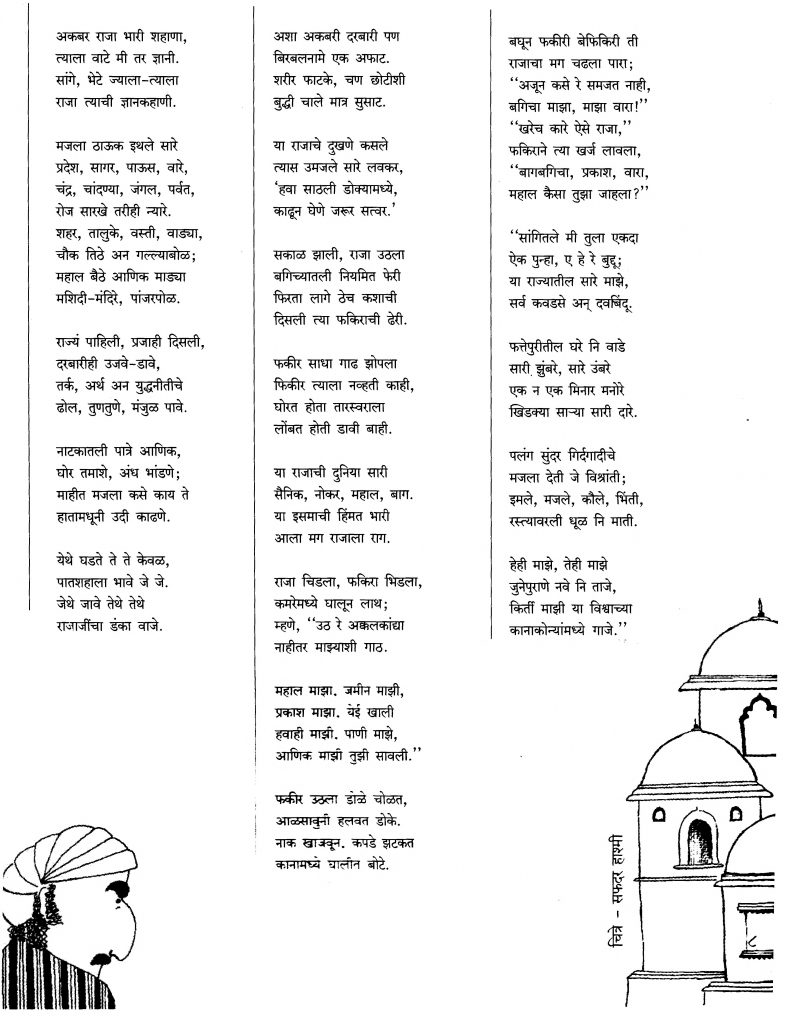 अकबर राजा भारी शहाणा,
त्याला वाटे मी तर ज्ञानी.
सांगे, भेटे ज्याला-त्याला
राजा त्याची ज्ञानकहाणी.

मजला ठाऊक इथले सारे
प्रदेश, सागर, पाऊस, वारे,
चंद्र, चांदण्या, जंगल, पर्वत,
रोज सारखे तरीही न्यारे.
शहर, तालुके, वस्ती, वाड्या,
चौक तिठे अन गल्ल्याबोळ;
महाल बैठे आणिक माड्या
मशिदी-मंदिरे, पांजरपोळ.

राज्यं पाहिली, प्रजाही दिसली,
दरबारीही उजवे-डावे,
तर्क, अर्थ अन युद्धनीतीचे
ढोल, तुणतुणे, मंजुळ पावे.

नाटकातली पात्रे आणिक,
घोर तमाशे, अंध भांडणे;
माहीत मजला कसे काय ते
हातामधूनी उदी काढणे.

येथे घडते ते ते केवळ,
पातशहाला भावे जे जे.
जेथे जावे तेथे तेथे
राजाजींचा डंका वाजे.

अशा अकबरी दरबारी पण
बिरबलनामे एक अफाट.
शरीर फाटके, चण छोटीशी
बुद्धी चाले मात्र सुसाट.

या राजाचे दुखणे कसले
त्यास उमजले सारे लवकर,
'हवा साठली डोक्यामध्ये,
काढून घेणे जरूर सत्वर.'

सकाळ झाली, राजा उठला
बगिच्यातली नियमित फेरी
फिरता लागे ठेच कशाची
दिसली त्या फकिराची ढेरी.

फकीर साधा गाढ झोपला
फिकीर त्याला नव्हती काही,
घोरत होता तारस्वराला
लोंबत होती डावी बाही.

या राजाची दुनिया सारी
सैनिक, नोकर, महाल, बाग.
या इसमाची हिंमत भारी
आला मग राजाला राग.

राजा चिडला, फकिरा भिडला,
कमरेमध्ये घालून लाथ;
म्हणे, ''उठ रे अक्कलकांद्या
नाहीतर माझ्याशी गाठ.

महाल माझा. जमीन माझी,
प्रकाश माझा. येई खाली
हवाही माझी. पाणी माझे,
आणिक माझी तुझी सावली.''

फकीर उठला डोळे चोळत,
आळसावुनी हलवत डोके.
नाक खाजवून. कपडे झटकत
कानामध्ये घालीत बोटे.

बघून फकीरी बेफिकिरी ती
राजाचा मग चढला पारा;
''अजून कसे रे समजत नाही,
बगिचा माझा, माझा वारा!''
''खरेच कारे ऐसे राजा,''
फकिराने त्या खर्ज लावला,
''बागबगिचा, प्रकाश, वारा,
महाल कैसा तुझा जाहला?''

''सांगितले मी तुला एकदा
ऐक पुन्हा, ए हे रे बुद्दू;
या राज्यातील सारे माझे,
सर्व कवडसे अन् दवबिंदू.

फत्तेपुरीतील घरे नि वाडे
सारी झुंबरे, सारे उंबरे
एक न एक मिनार मनोरे
खिडक्या साऱ्या सारी दारे.

पलंग सुंदर गिर्दगादीचे
मजला देती जे विश्रांती;
इमले, मजले, कौले, भिंती,
रस्त्यावरली धूळ नि माती.

हेही माझे, तेही माझे
जुनेपुराणे नवे नि ताजे,
किर्ती माझी या विश्वाच्या
कानाकोन्यांमध्ये गाजे.''

चित्रे - सफदर हाश्मी
८